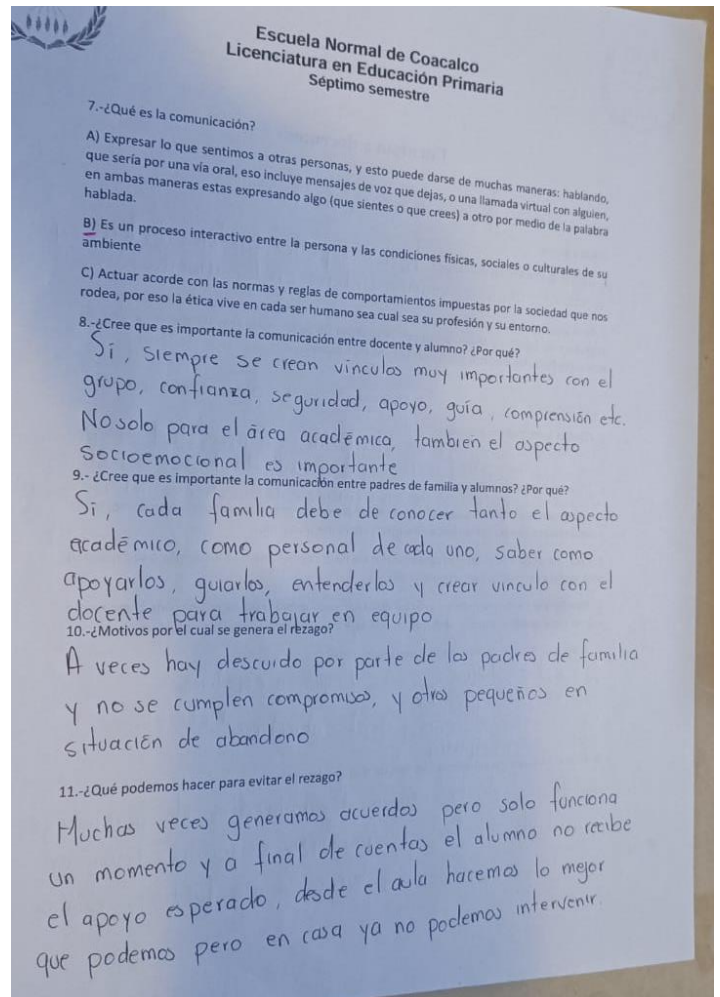 Escuela Normal de Coacalco
Licenciatura en Educación Primaria
Séptimo semestre
7.-¿Qué es la comunicación?
A) Expresar lo que sentimos a otras personas, y esto puede darse de muchas maneras: hablando,
que sería por una vía oral, eso incluye mensajes de voz que dejas, o una llamada virtual con alguien,
en ambas maneras estas expresando algo (que sientes o que crees) a otro por medio de la palabra
hablada.
B) Es un proceso interactivo entre la persona y las condiciones físicas, sociales o culturales de su
ambiente
C) Actuar acorde con las normas y reglas de comportamientos impuestas por la sociedad que nos
rodea, por eso la ética vive en cada ser humano sea cual sea su profesión y su entorno.
8.-¿Cree que es importante la comunicación entre docente y alumno? ¿Por qué?
Si, siempre se crean vínculos muy importantes con el
grupo, confianza, seguridad, apoyo, guía, comprensión etc.
No solo para el área académica, tambien el aspecto
socioemocional es importante
9.- ¿Cree que es importante la comunicación entre padres de familia y alumnos? ¿Por qué?
Si, cada familia debe de conocer tanto el aspecto
académico, como personal de cada uno, saber como
apoyarlos, guiarlos, entenderlos y crear vinculo con el
docente para trabajar en equipo
10.-¿Motivos por el cual se genera el rezago?
A veces hay descuido por parte de los padres de familia
y no se cumplen compromisos, y otros pequeños en
situación de abandono
11.-¿Qué podemos hacer para evitar el rezago?
Muchas veces generamos acuerdos pero solo funciona
un momento y a final de cuentas el alumno no recibe
el apoyo esperado, desde el aula hacemos lo mejor
que podemos pero en casa ya no podemos intervenir.